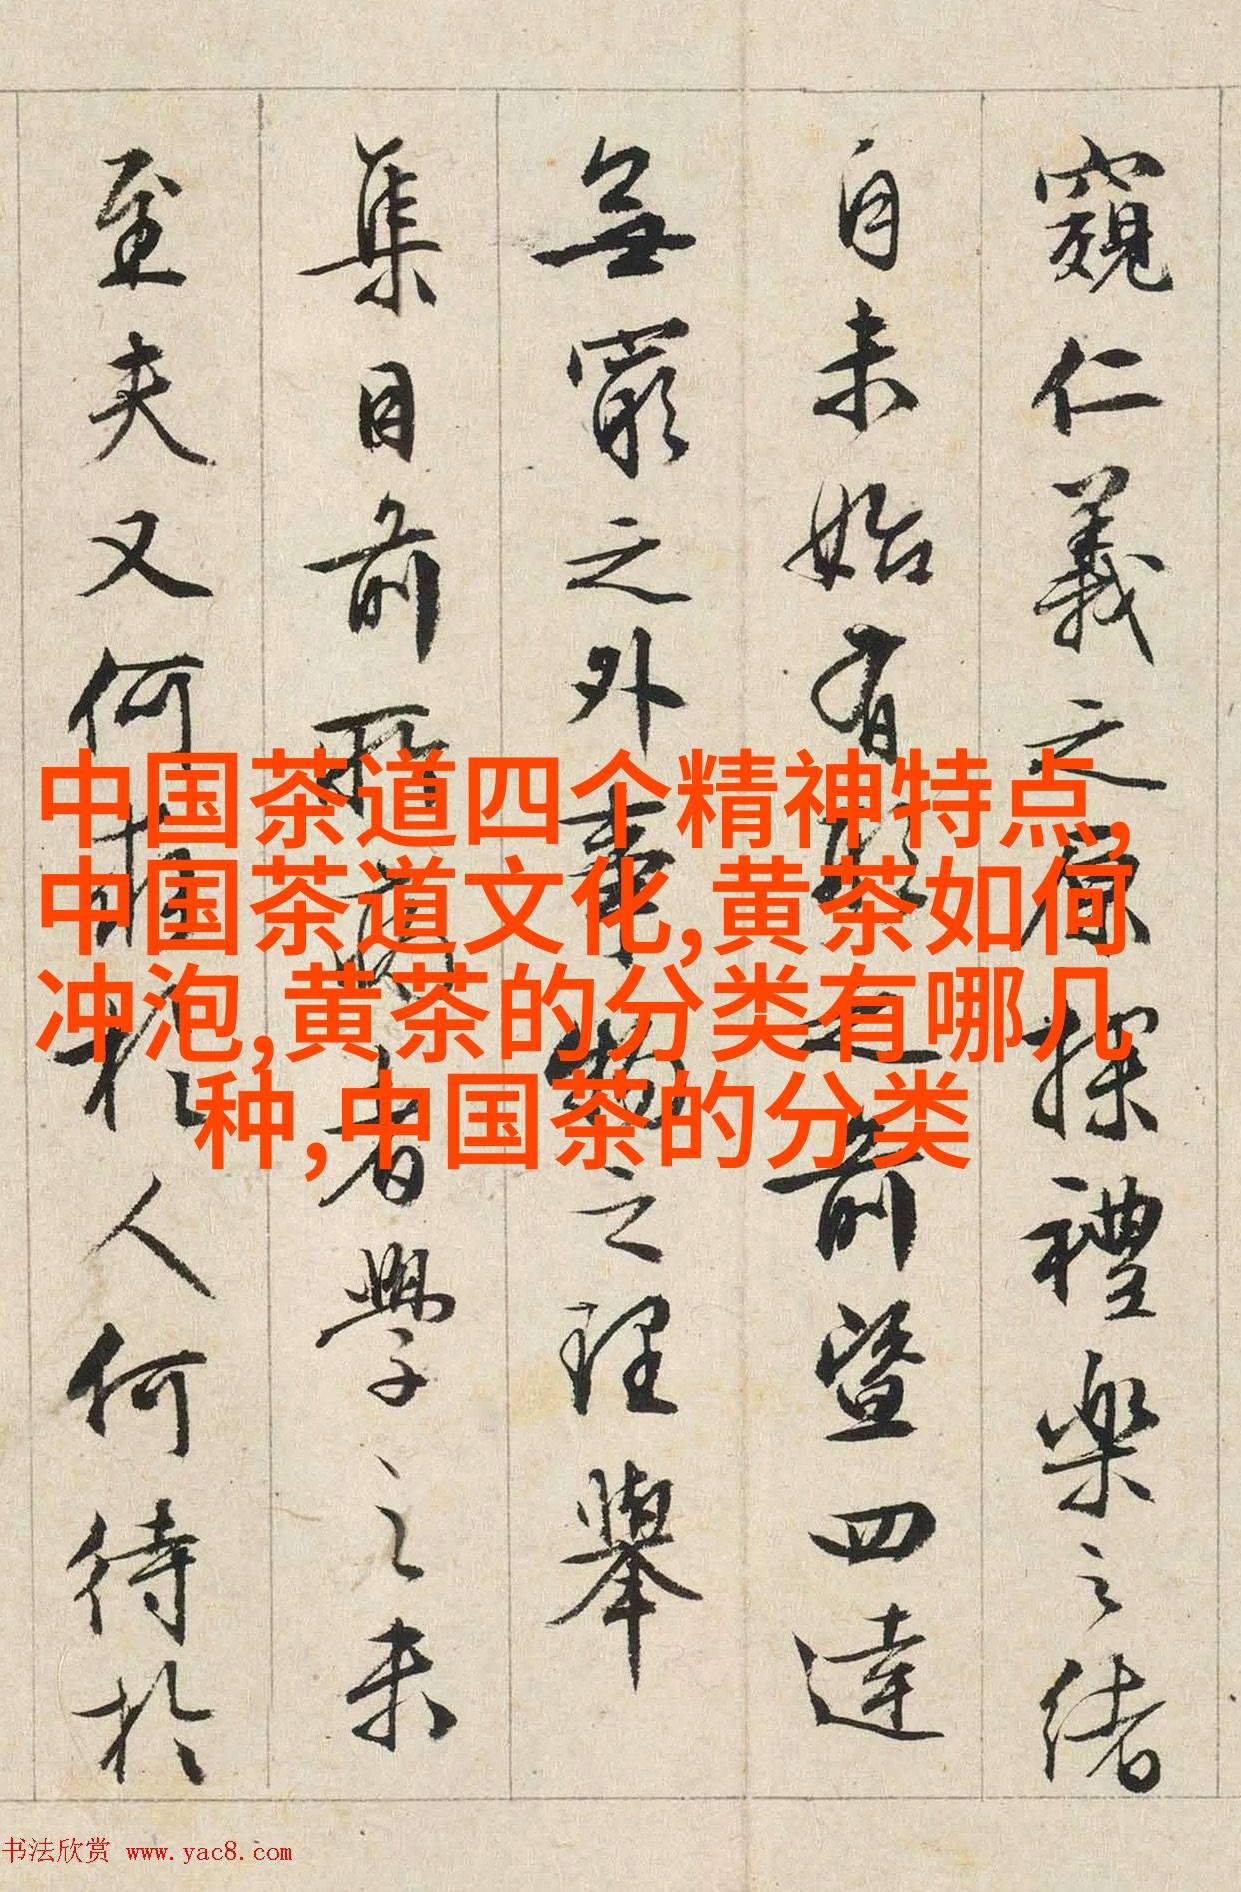 窺仁義之原探禮樂之緒
自未始有
前暨四達
無窮之外事物之理舉
集目前所
者學之未
至夫又何
於人何待於
中国茶道四个精神特点,
中国茶道文化,黄茶如何
冲泡,黄茶的分类有哪几
种,中国茶的分类
书法欣赏 www.yac8.com